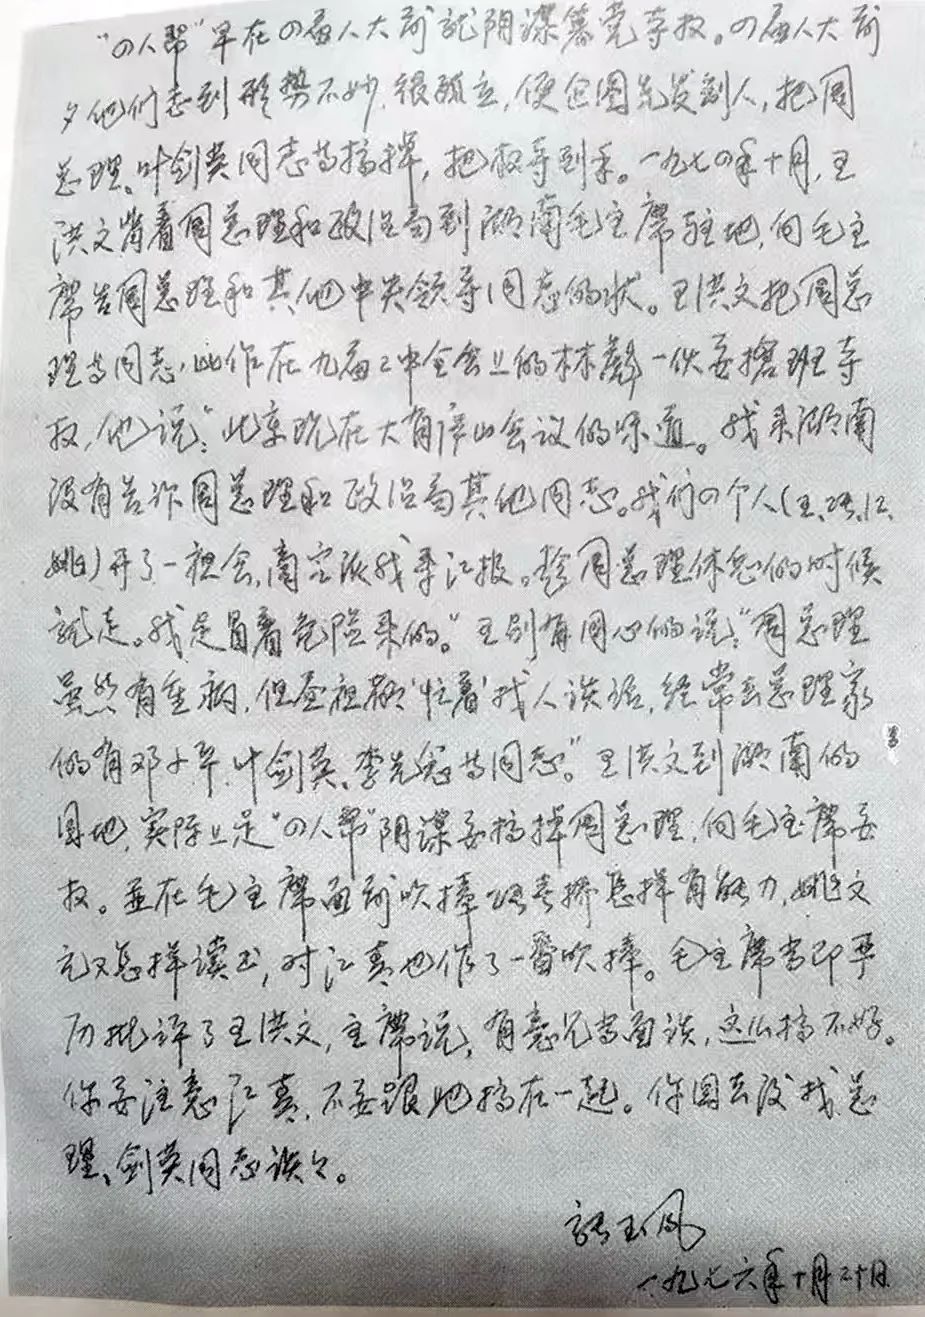 “四人帮”早在四届人大前就阴谋篡党夺权。四届人大前
夕他们感到形势不妙,很孤立,便企图先发制人,把周
总理、叶剑英同志等搞掉,把权夺到手。一九七四年十月,王
洪文背着周总理和政治局到湖南毛主席驻地,向毛主
席告周总理和其他中央领导同志的状。王洪文把周总
理等同志,比作在九届二中全会上的林彪一伙要抢班夺
权,他说:“北京现在大有庐山会议的味道。我来湖南
没有告诉周总理和政治局其他同志。我们四个人(王、张、江、
姚)开了一夜会,商定派我来汇报。趁周总理休息的时候
就走。我是冒着危险来的。”王别有用心的说:“周总理
虽然有重病,但昼夜都‘忙着’找人谈话,经常去总理家
的有邓小平、叶剑英、李先念等同志。”王洪文到湖南的
目地,实际上是“四人帮”阴谋要搞掉周总理,向毛主席要
权。並在毛主席面前吹捧张春桥怎样有能力,姚文
元又怎样读书,对江青也作了一番吹捧。毛主席当即严
厉批评了王洪文,主席说,有意见当面谈,这么搞不好。
你要注意江青,不要跟她搞在一起。你回去后找总
理、剑英同志谈谈。
张玉凤
一九七六年十月二十日